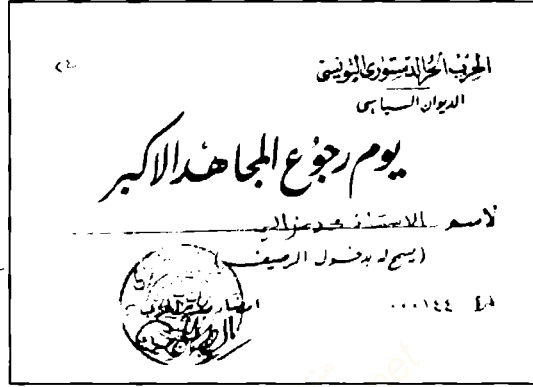 الحزب الحر الدستوري التونسي
الديوان السياسي
يوم رجوع المجاهد الاكبر
لاسم الاستاذ محمد مزالي
(يسمح له بدخول الرصيف)
000144
امضاء